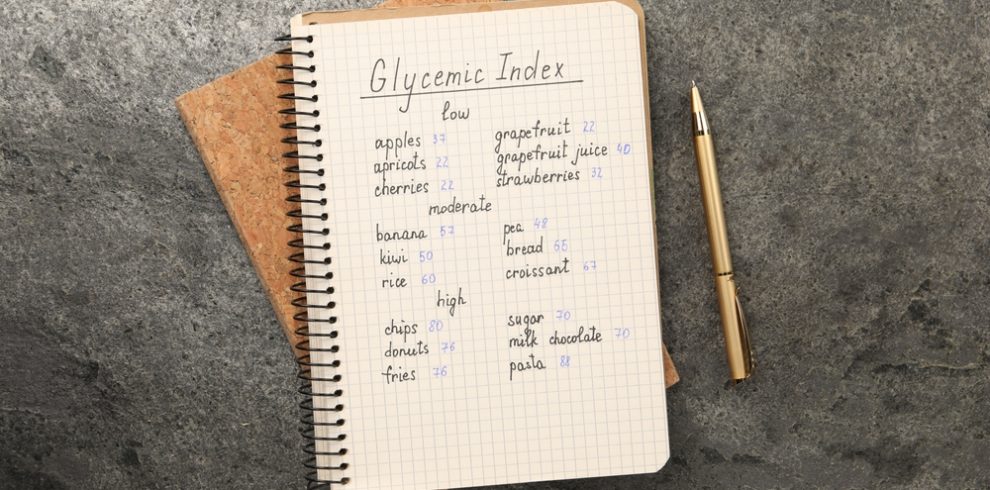 Glycemic Index
low
apples 37 grapefruit 22
apricots 22 grapefruit juice 40
cherries 22 strawberries 32
moderate
banana 57 pea 48
kiwi 50 bread 65
rice 60 croissant 67
high
chips 80 sugar 70
donuts 76 milk chocolate 70
fries 76 pasta 88